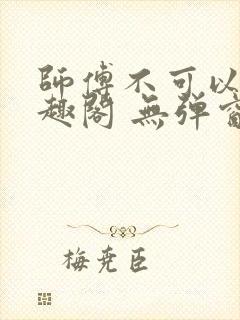 師傅不可以
趣閣 無弹窗
梅尭臣